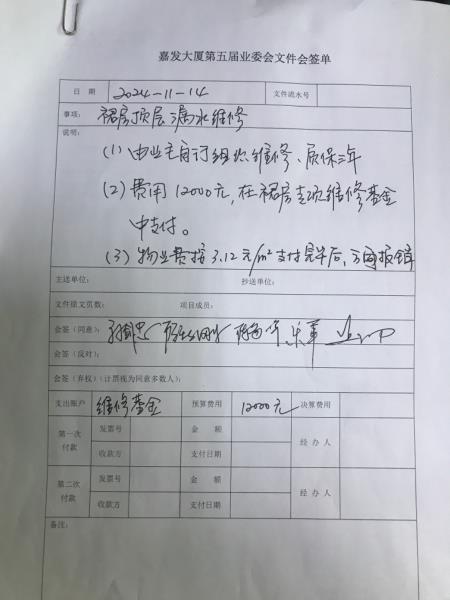 嘉发大厦第五届业委会文件会签单
日 期 2024-11-14 文件流水号
事项: 裙房顶层漏水维修
说明:
(1) 由业主自行组织维修、质保三年
(2) 费用12000元,在裙房专项维修基金
中支付。
(3) 物业费按3.12元/m²支付完毕后,方可报销
主送单位: 抄送单位:
文件原文页数: 项目成员:
会签(同意):
会签(反对):
会签(弃权)(计票视为同意多数人):
支出账户 维修基金 预算费用 12000元 决算费用
第一次付款 发票号 金 额 经 办 人
收款方 支付日期
第二次付款 发票号 金 额 经 办 人
收款方 支付日期
备注: